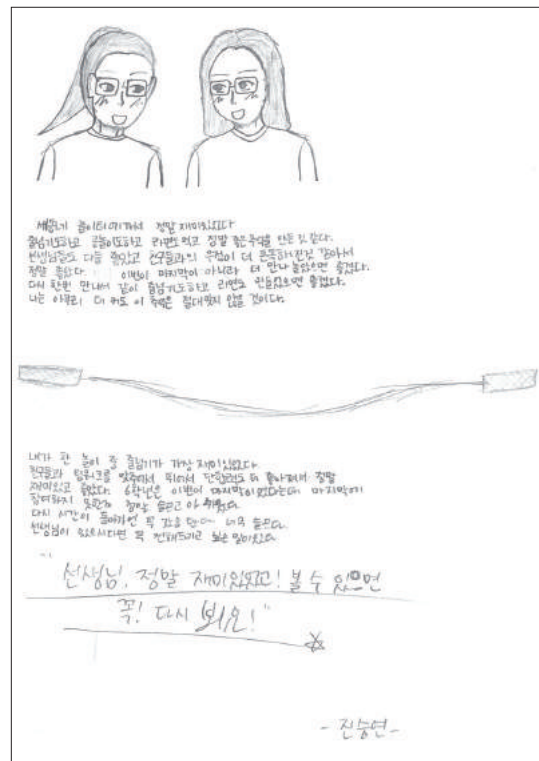 놀이터에가서 정말 재미있었다
줄넘기도하고 공놀이도하고 라면도 먹고 정말 좋은추억을 만든 것 같다.
선생님들도 다들 좋았고 친구들과의 우정이 더 돈독해진것 같아서
정말 좋았다. 이번이 마지막이 아니라 더 만나 놀았으면 좋겠다.
다시 한번 만나서 같이 줄넘기도하고 라면도 만들었으면 좋겠다.
나는 아무리 더 커도 이 추억은 절대잊지 않을 것이다.
내가 한 놀이 중 줄넘기가 가장 재미있었다
친구들과 팀워크를 맞추어서 뛰어서 단합력도 더 좋아져서 정말
재미있고 좋았다. 6학년은 이번이 마지막이었다는데 마지막에
참여하지 못한게 정말 슬프고 아쉬웠다.
다시 시간이 돌아가면 꼭 갔을 텐데 너무 슬프다.
선생님이 있으시다면 꼭 전해드리고 싶은 말이있다.
"선생님, 정말 재미있었고! 볼 수 있으면
꼭! 다시 봐요!"
- 진승연 -